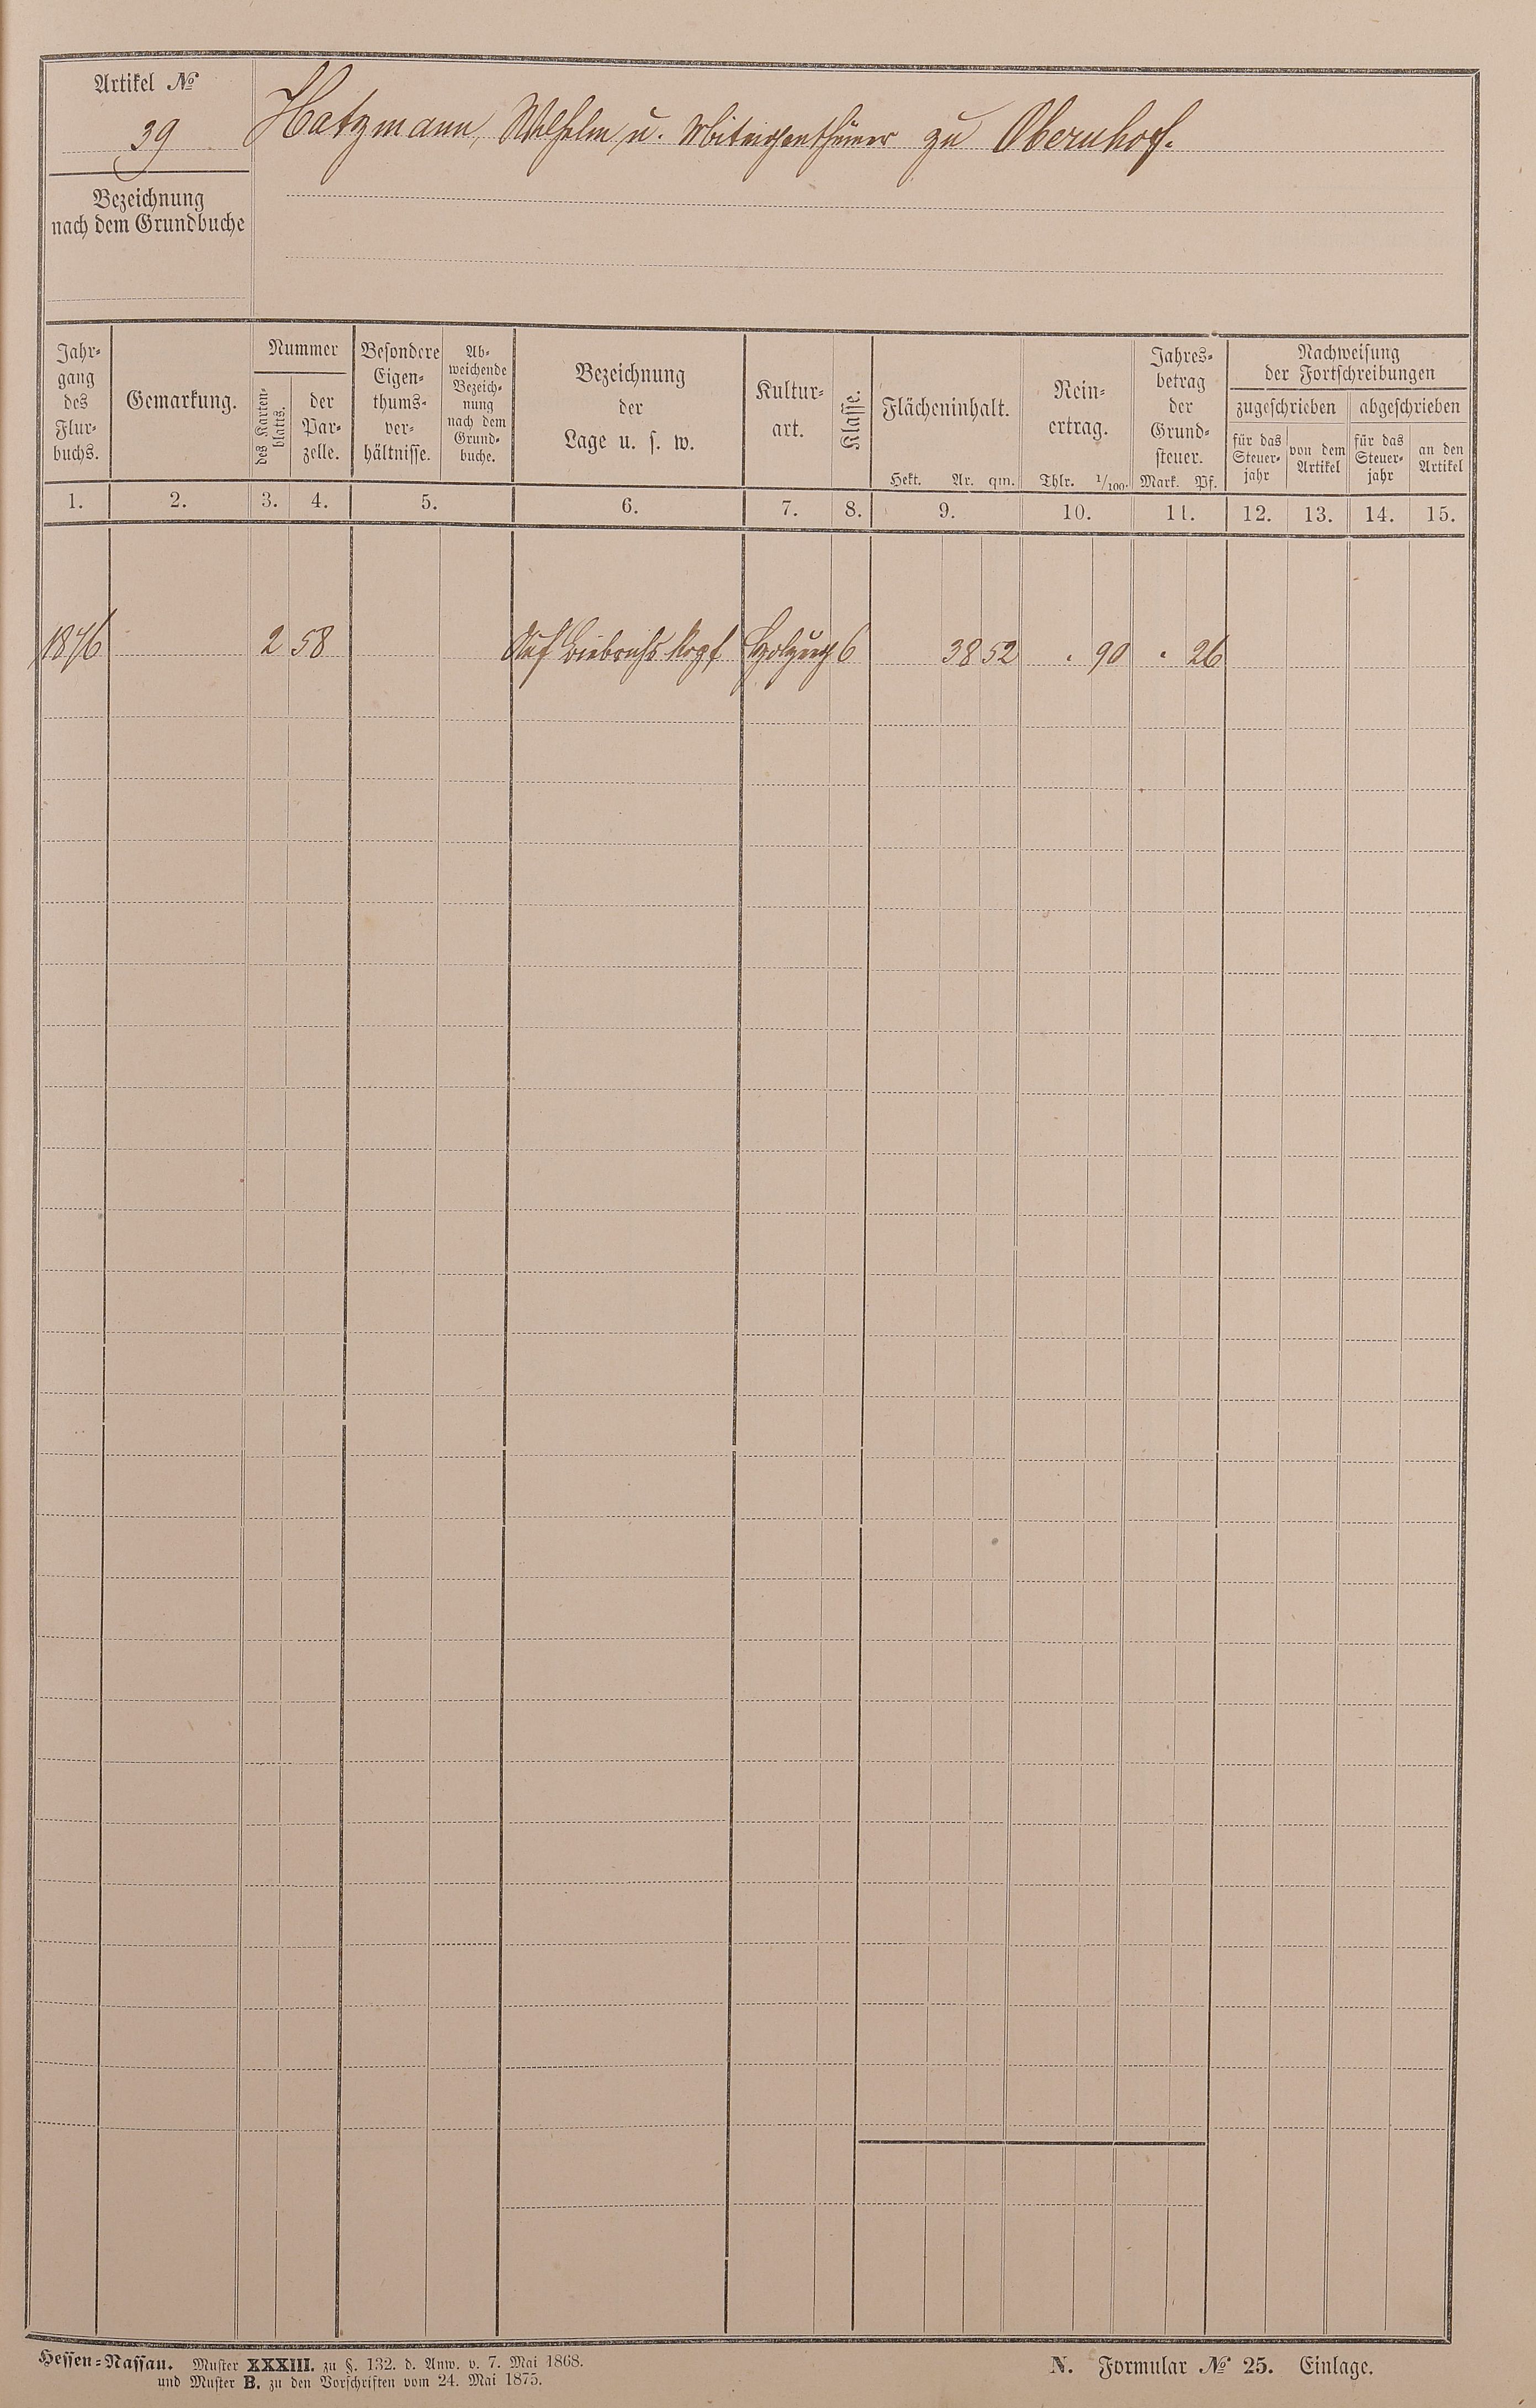 Artikel №
39
Hatzmann, Wilhelm u. Miteigenthümer zu Obernhof.
Bezeichnung
nach dem Grundbuche
Jahr-
gang
des
Flur-
buchs.
Gemarkung.
Nummer
des Karten-
blatts.
der
Par-
zelle.
Besondere
Eigen-
thums-
ver-
hältnisse.
Ab-
weichende
Bezeich-
nung
nach dem
Grund-
buche.
Bezeichnung
der
Lage u. s. w.
Kultur-
art.
Klasse.
Flächeninhalt.
Hekt. Ar. qm.
Rein-
ertrag.
Thlr. 1/100.
Jahres-
betrag
der
Grund-
steuer.
Mark. Pf.
Nachweisung
der Fortschreibungen
zugeschrieben
abgeschrieben
für das
Steuer-
jahr
von dem
Artikel
für das
Steuer-
jahr
an den
Artikel
1. 2. 3. 4. 5. 6. 7. 8. 9. 10. 11. 12. 13. 14. 15.
1876 2 58 Auf Biebrichs Kopf Holzung 6 38 52 . 90 . 26
Hessen-Nassau. Muster XXXIII. zu §. 132. d. Anw. v. 7. Mai 1868.
und Muster B. zu den Vorschriften vom 24. Mai 1875.
N. Formular № 25. Einlage.